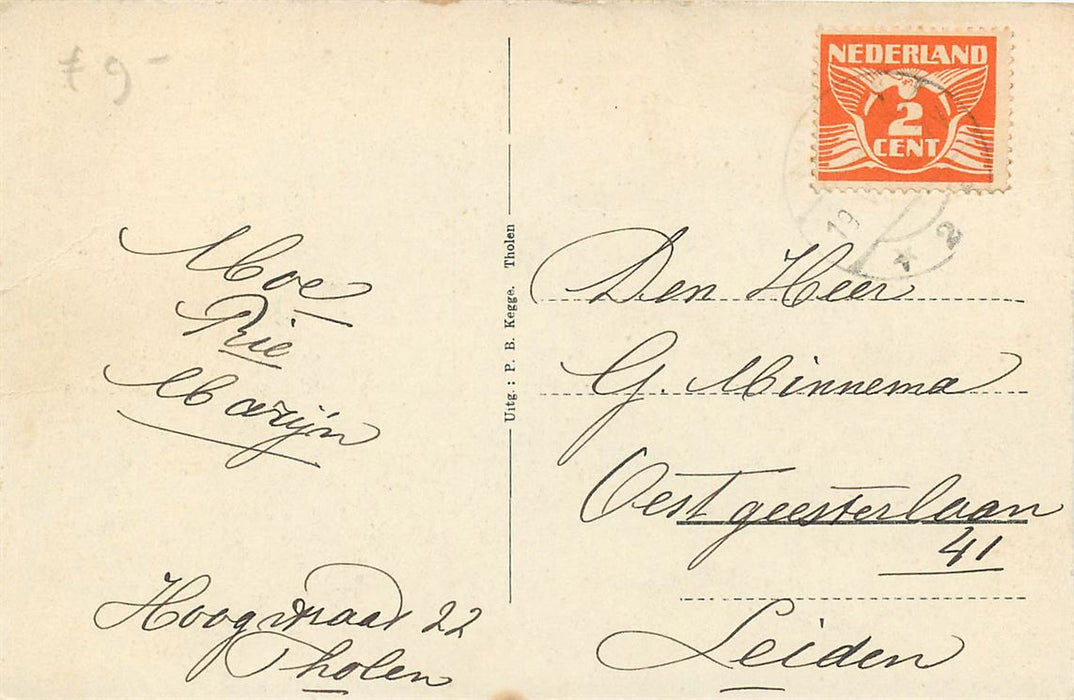 f 9-
NEDERLAND
2
CENT
19
2
Moe
Rie
Marijn
Hoogstraat 22
Tholen
Uitg.: P. B. Kegge. Tholen
Den Heer
G. Minnema
Oestgeesterlaan
41
Leiden